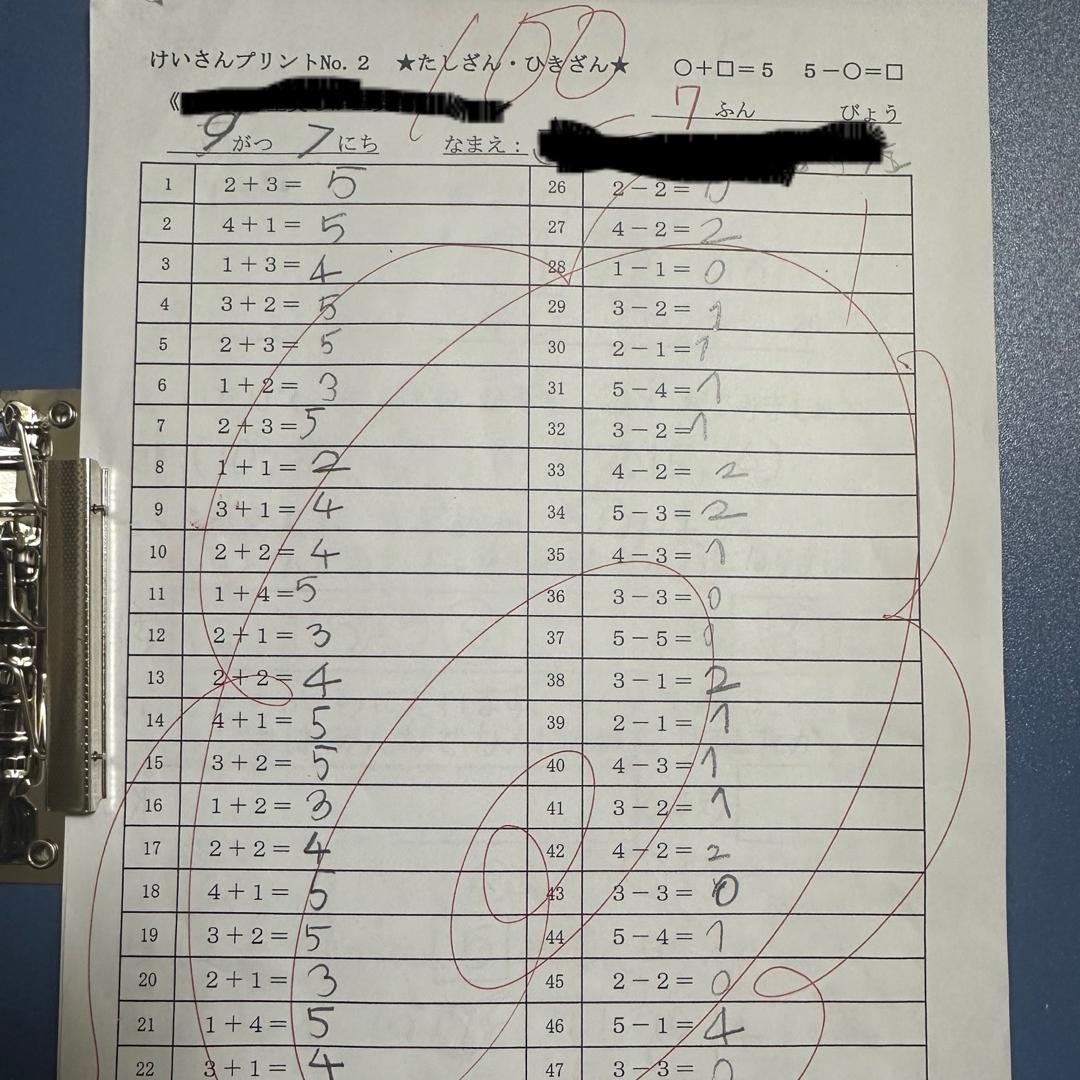 100
けいさんプリントNo. 2 ★たしざん・ひきざん★ ○+□=5 5-○=□
《
7 ふん びょう
9がつ 7にち なまえ：
1 2+3= 5
2 4+1= 5
3 1+3= 4
4 3+2= 5
5 2+3= 5
6 1+2= 3
7 2+3= 5
8 1+1= 2
9 3+1= 4
10 2+2= 4
11 1+4= 5
12 2+1= 3
13 2+2= 4
14 4+1= 5
15 3+2= 5
16 1+2= 3
17 2+2= 4
18 4+1= 5
19 3+2= 5
20 2+1= 3
21 1+4= 5
22 3+1= 4
26 2-2= 0
27 4-2= 2
28 1-1= 0
29 3-2= 1
30 2-1= 1
31 5-4= 1
32 3-2= 1
33 4-2= 2
34 5-3= 2
35 4-3= 1
36 3-3= 0
37 5-5= 0
38 3-1= 2
39 2-1= 1
40 4-3= 1
41 3-2= 1
42 4-2= 2
43 3-3= 0
44 5-4= 1
45 2-2= 0
46 5-1= 4
47 3-3= 0